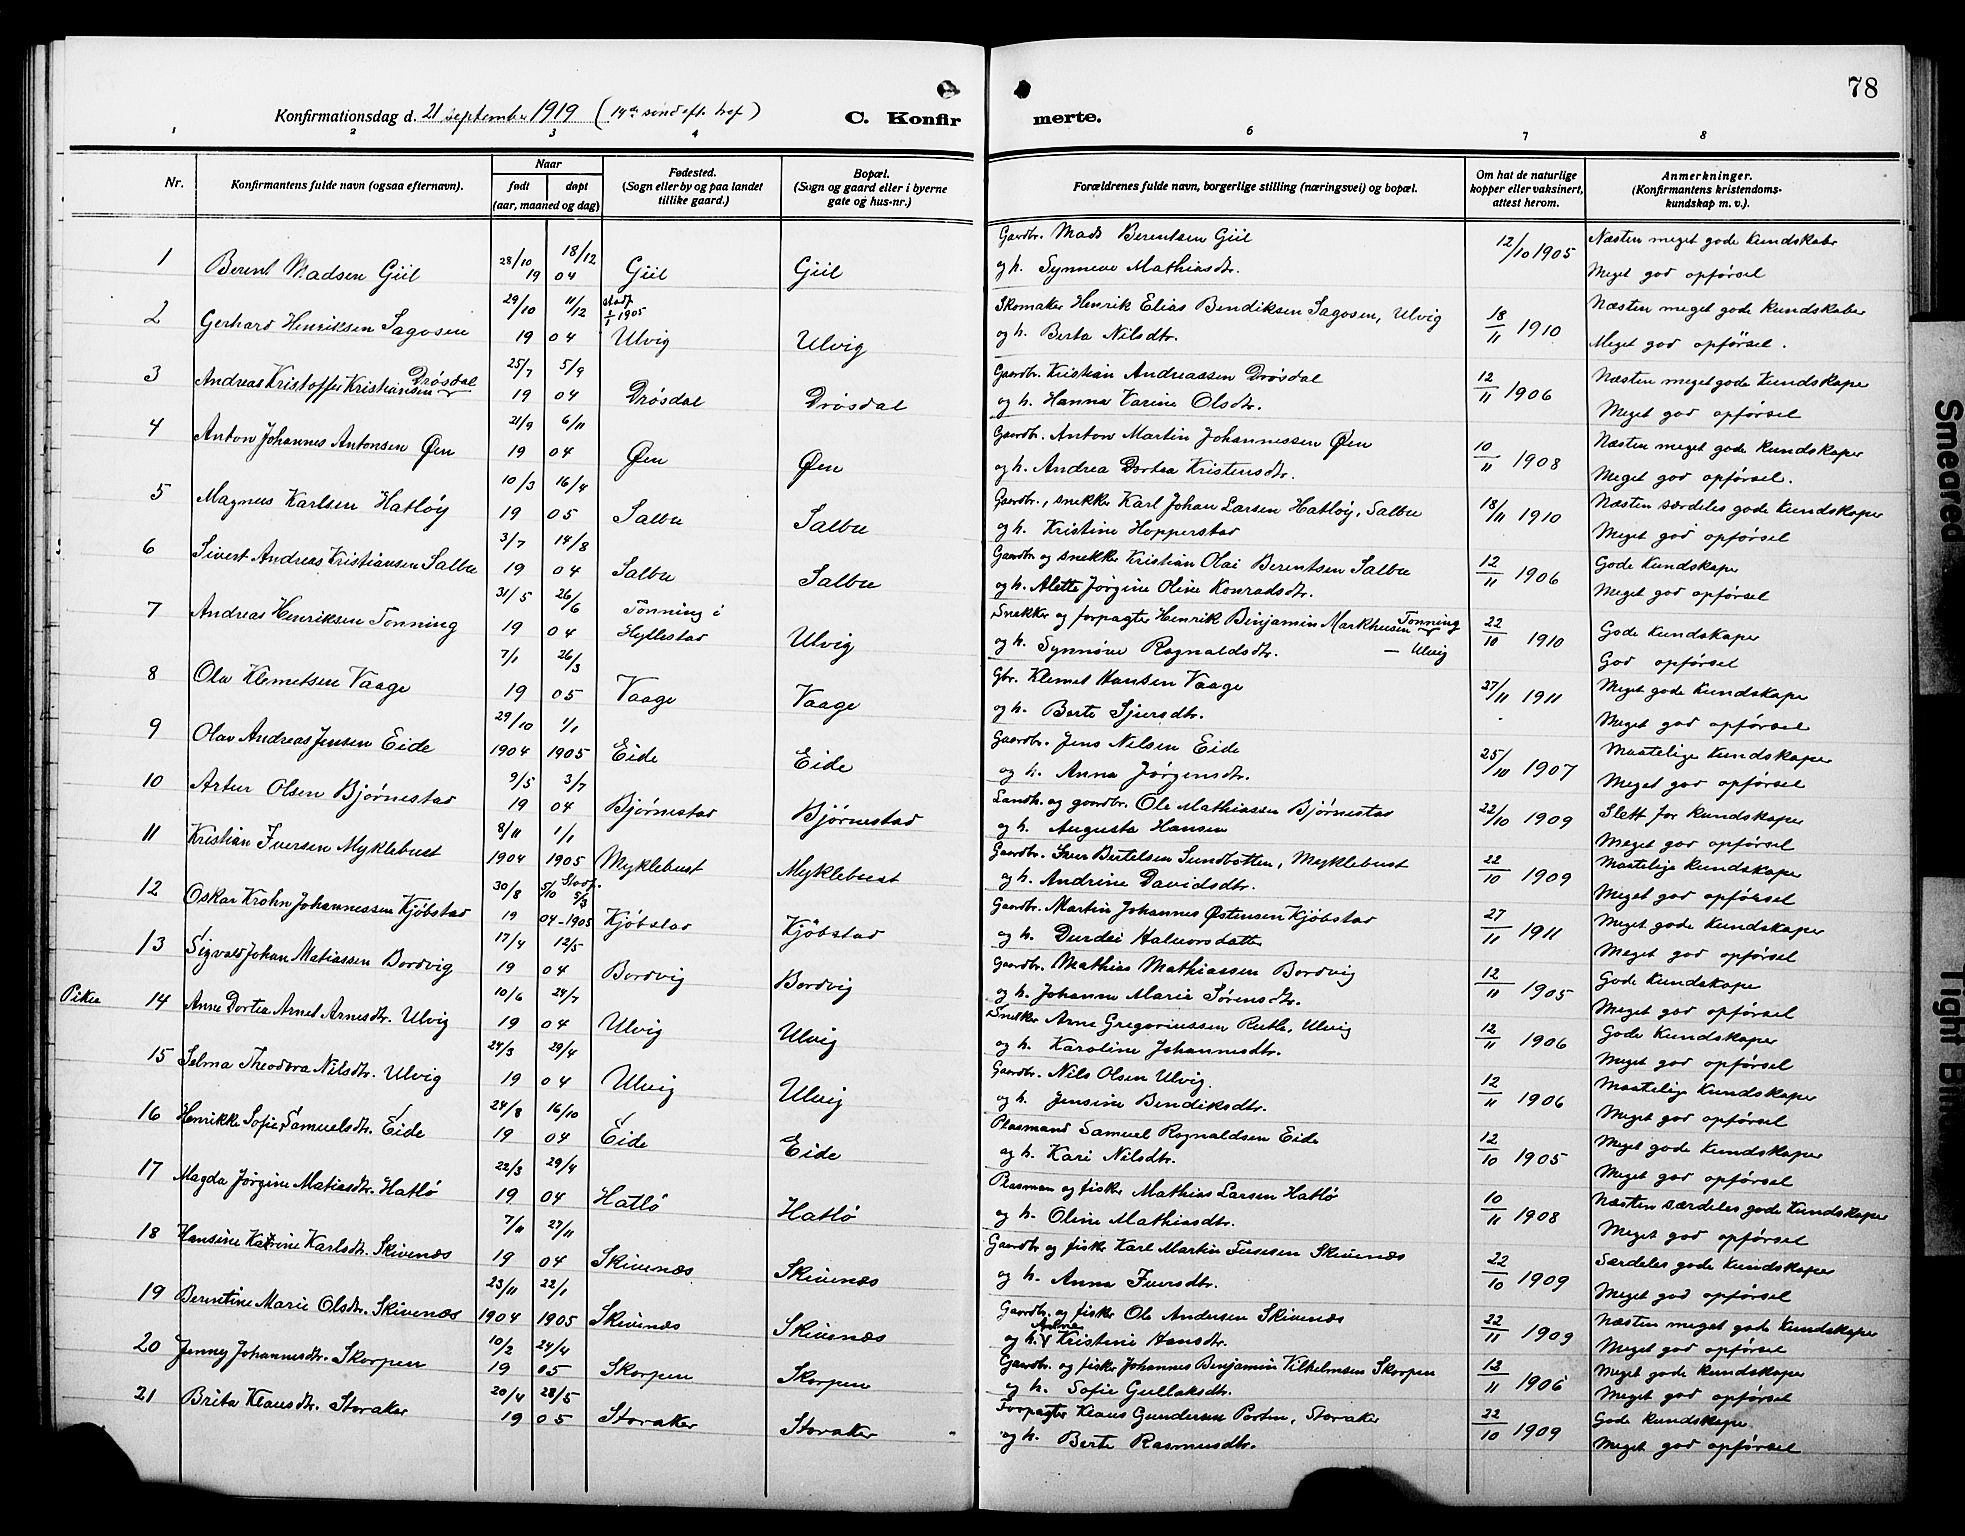 78
Konfirmationsdag d. 21 september 1919 (14de sønd eft. tref)
C. Konfirmerte.
1 2 3 4 6 7 8
Nr.
Konfirmantens fulde navn (ogsaa efternavn).
Naar
født døpt
(aar, maaned og dag)
Fødested.
(Sogn eller by og paa landet
tillike gaard.)
Bopæl.
(Sogn og gaard eller i byerne
gate og hus-nr.)
Forældrenes fulde navn, borgerlige stilling (næringsvei) og bopæl.
Om hat de naturlige
kopper eller vaksinert,
attest herom.
Anmerkninger.
(Konfirmantens kristendoms-
kundskap m. v.).
1 Berent Madsen Giil 28/10 18/12 19 04 Giil Giil
Gaardbr. Mads Berentsen Giil 12/10 1905 Næsten meget gode Kundskaber
og h. Synneve Mathiasdtr. Meget god opførsel
2 Gerhard Henriksen Sagosen 29/10 11/12 stadf 1/1 1905 19 04 Ulvig Ulvig
Skomaker Henrik Elias Bendiksen Sagosen, Ulvig 18/11 1910 Næsten meget gode Kundskaber
og h. Berta Nilsdtr. Meget god opførsel.
3 Andreas Kristoffer Kristiansen Drøsdal 25/7 5/9 19 04 Drøsdal Drøsdal
Gaardbr. Kristian Andreassen Drøsdal 12/11 1906 Næsten meget gode Kundskaper
og h. Hanna Karine Olsdtr. Meget god opførsel
4 Anton Johannes Antonsen Øen 21/9 6/11 19 04 Øen Øen
Gaardbr. Anton Martin Johannessen Øen 10/11 1908 Næsten meget gode Kundskaper
og h. Andrea Dortea Kristensdtr. Meget god opførsel.
5 Magnus Karlsen Hatløy 10/3 16/4 19 05 Salbu Salbu
Gaardbr., snekker Karl Johan Larsen Hatløy, Salbu 18/11 1910 Næsten særdeles gode Kundskaper
og h. Kristine Hopperstad Meget god opførsel
6 Sivert Andreas Kristiansen Salbu 3/7 14/8 19 04 Salbu Salbu
Gaardbr og snekker Kristian Olai Berentsen Salbu 12/11 1906 Gode Kundskaper
og h. Alette Jørgine Oline Konradsdtr. Meget god opførsel
7 Andreas Henriksen Tønning 31/5 26/6 19 04 Tønning i Hyllestad Ulvig
Snekker og forpagter Henrik Benjamin Markhusen Tønning 22/10 1910 Gode Kundskaper
og h. Synnøve Ragnaldsdtr. — Ulvig God opførsel
8 Ola Klemetsen Vaage 7/1 26/3 19 05 Vaage Vaage
Gbr. Klemet Hansen Vaage 27/11 1911 Meget gode Kundskaper
og h. Berte Sjursdtr. Meget god opførsel
9 Olav Andreas Jensen Eide 29/10 1/1 1904 1905 Eide Eide
Gaardbr. Jens Nilsen Eide 25/10 1907 Maatelige Kundskaper
og h. Anna Jørgensdtr. Meget god opførsel
10 Artur Olsen Bjørnestad 9/5 3/7 19 04 Bjørnestad Bjørnestad
Landh. og gaardbr. Ole Mathiassen Bjørnestad 22/10 1909 Slett før kundskaper
og h. Augusta Hansen Meget god opførsel
11 Kristian Iversen Myklebust 8/11 1/1 1904 1905 Myklebust Myklebust
Gaardbr. Iver Bertelsen Sundbotten, Myklebust 22/10 1909 Maatelige kundskaper
og h. Andrine Davidsdtr. Meget god opførsel
12 Oskar Krohn Johannessen Kjøbstad 30/8 5/10 Stadf. 5/3 19 04-1905 Kjøbstad Kjøbstad
Gaardbr. Martin Johannes Østensen Kjøbstad 27/11 1911 Meget gode Kundskaper
og h. Durdei Halvorsdatter Meget god opførsel
13 Sigvald Johan Matiassen Bordvig 17/4 12/5 19 04 Bordvig Bordvig
Gaardbr. Mathias Mathiassen Bordvig 12/11 1905 Gode Kundskaper
og h. Johanne Marie Sørensdtr. Meget god opførsel
Piker 14 Anne Dortea Arnet Arnesdtr. Ulvig 10/6 24/7 19 04 Ulvig Ulvig
Snekker Arne Gregoriussen Rutle, Ulvig 12/11 1906 Gode Kundskaper
og h. Karoline Johannesdtr. Meget god opførsel
15 Selma Theodora Nilsdtr. Ulvig 24/3 29/4 19 04 Ulvig Ulvig
Gaardbr. Nils Olsen Ulvig. 12/11 1906 Maatelige Kundskaper
og h. Jensine Bendiksdtr. Meget god opførsel
16 Henrikke Sofie Samuelsdtr. Eide 24/8 16/10 19 04 Eide Eide
Plasmand Samuel Ragnaldsen Eide 12/10 1905 Meget gode Kundskaper
og h. Kari Nilsdtr. Meget god opførsel
17 Magda Jørgine Matiasdtr. Hatlø 22/3 29/4 19 04 Hatlø Hatlø
Plasman og fisker Mathias Larsen Hatlø 10/11 1908 Næsten særdeles gode Kundskaper
og h. Oline Mathiasdtr. Meget god opførsel
18 Hansine Katrine Karlsdtr. Skivenæs 7/11 27/11 19 04 Skivenæs Skivenæs
Gaardbr og fisker Karl Martin Skivenæs 22/10 1909 Særdeles gode Kundskaper
og h. Anna Iversdtr. Meget god opførsel
19 Berentine Marie Olsdtr. Skivenæs 23/11 22/1 1904 1905 Skivenæs Skivenæs
Gaardbr. og fisker Ole Andersen Skivenæs 22/11 1909 Næsten meget gode Kundskaper
og h. Kristine Hansdtr. Meget god opførsel
20 Jenny Johannesdtr. Skorpen 10/2 24/4 19 05 Skorpen Skorpen
Gaardbr og fisker Johannes Benjamin Vilhelmsen Skorpen 12/11 1906 Meget gode Kundskaper
og h. Sofie Gullaksdtr. Meget god opførsel
21 Brita Klausdtr. Storaker 20/4 28/5 19 05 Storaker Storaker
Forpagter Klaus Gundersen Porten, Storaker 22/10 1909 Gode Kundskaper
og h. Berte Rasmusdtr. Meget god opførsel
Smeared
Tight Bin